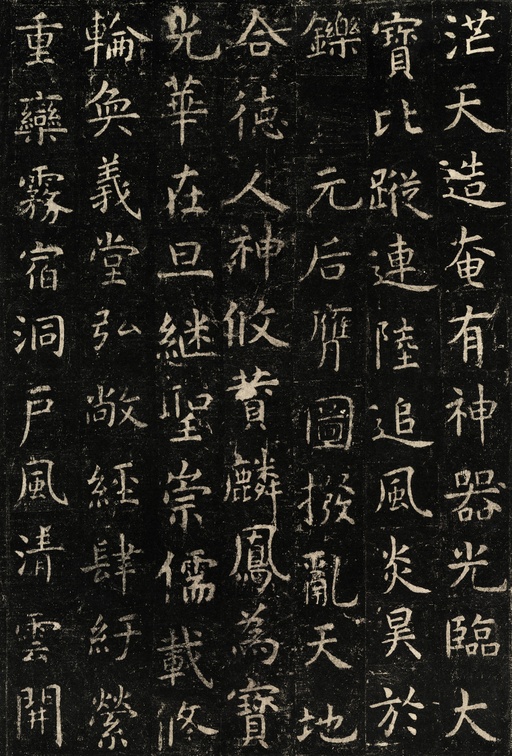 茫天造奄有神器光臨大
寶比蹤連陸追風炎昊於
鑠元后膺圖撥亂天地
合德人神攸贊麟鳳為寶
光華在旦継聖崇儒載脩
輪奐義堂弘敞經肆紆縈
重欒霧宿洞戶風清雲開